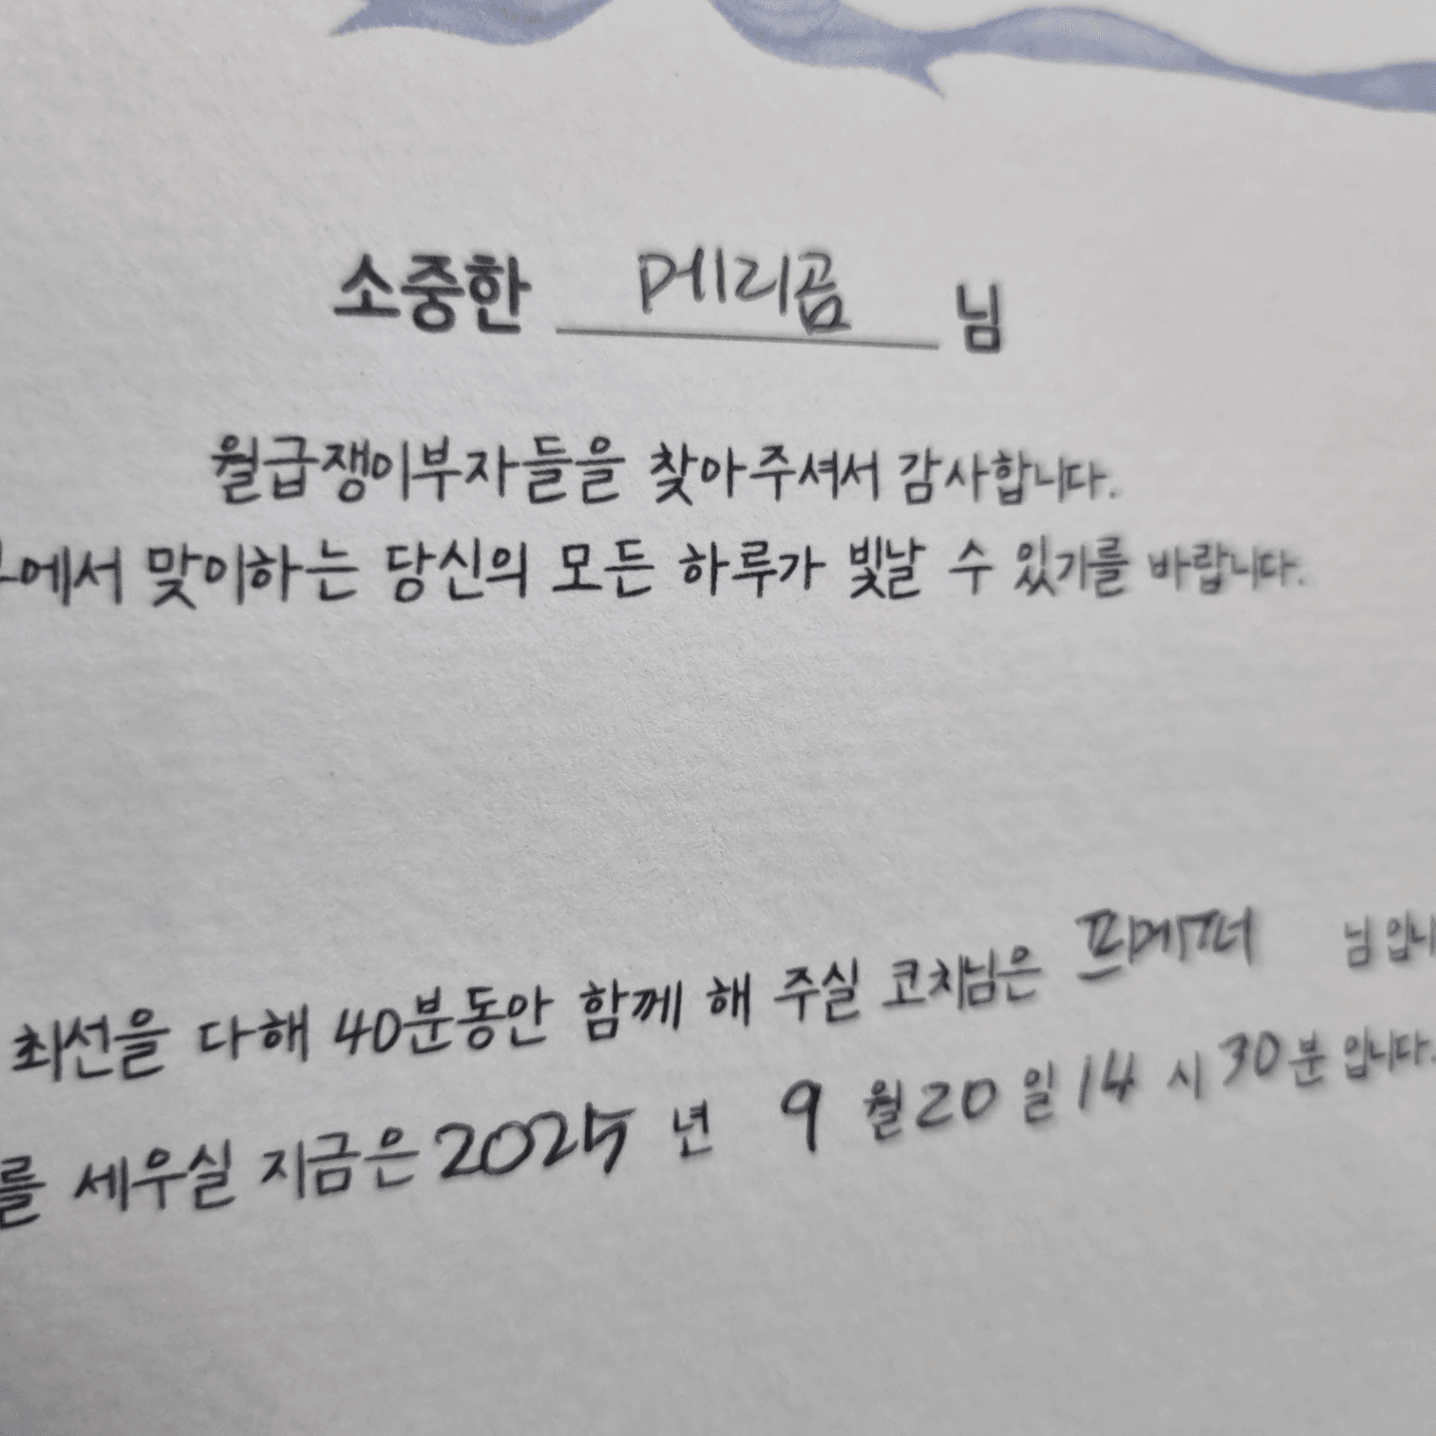 소중한 메리곰 님
월급쟁이부자들을 찾아주셔서 감사합니다.
에서 맞이하는 당신의 모든 하루가 빛날 수 있기를 바랍니다.
최선을 다해 40분동안 함께 해 주실 코치님은 님입니
를 세우실 지금은 2025 년 9 월 20 일 14 시 30 분 입니다.